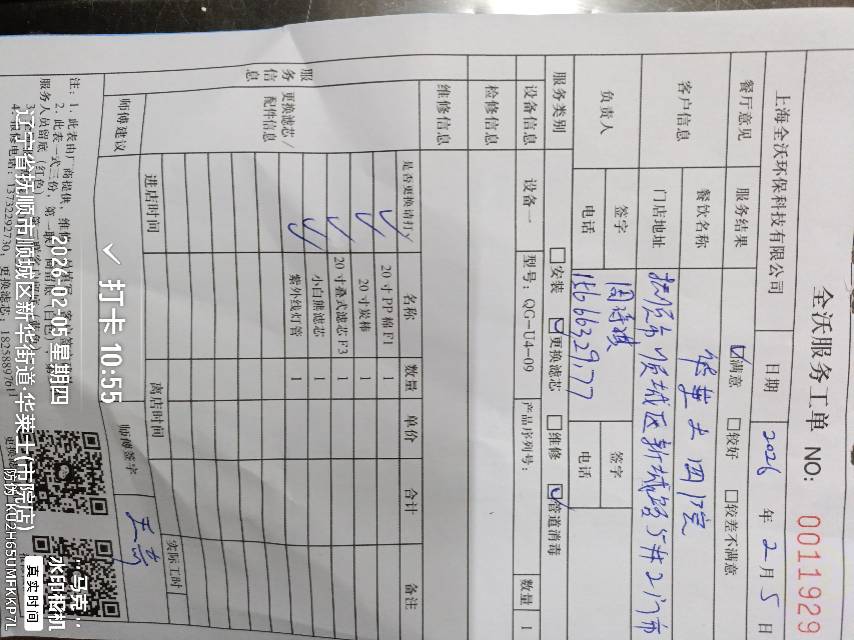 全沃服务工单 NO: 00119​29
上海全沃环保科技有限公司 日期 2026 年 2 月 5 日
餐厅意见 服务结果 ☑满意 □较好 □较差不满意
客户信息 餐饮名称 华莱士四院
门店地址 抚顺市顺城区新城路5#2门市
负责人 签字 签字
电话 15666329177 电话
服务类别 □安装 ☑更换滤芯 □维修 ☑管道消毒
设备信息 设备一 型号：QG-U4-09 产品序列号： 数量 1
检修信息
维修信息
服务信息 更换滤芯/配件信息
是否更换请打√ 名称 数量 单价 合计 备注
√ 20寸PP棉F1 1
√ 20寸炭棒 1
√ 20寸叠式滤芯F3 1
√ 小白熊滤芯 1
√ 紫外线灯管 1
师傅建议 进店时间 离店时间 师傅签字 实际工时
注：1.此表由厂商提供，
2.此表一式三份，第一联
服务人员留底（红色）
✓打卡 10:55
2026-02-05 星期四
辽宁省抚顺市顺城区新华街道·华莱士(市院店)
马克
水印相机
真实时间
防伪 KU2H65UMFKKP7L